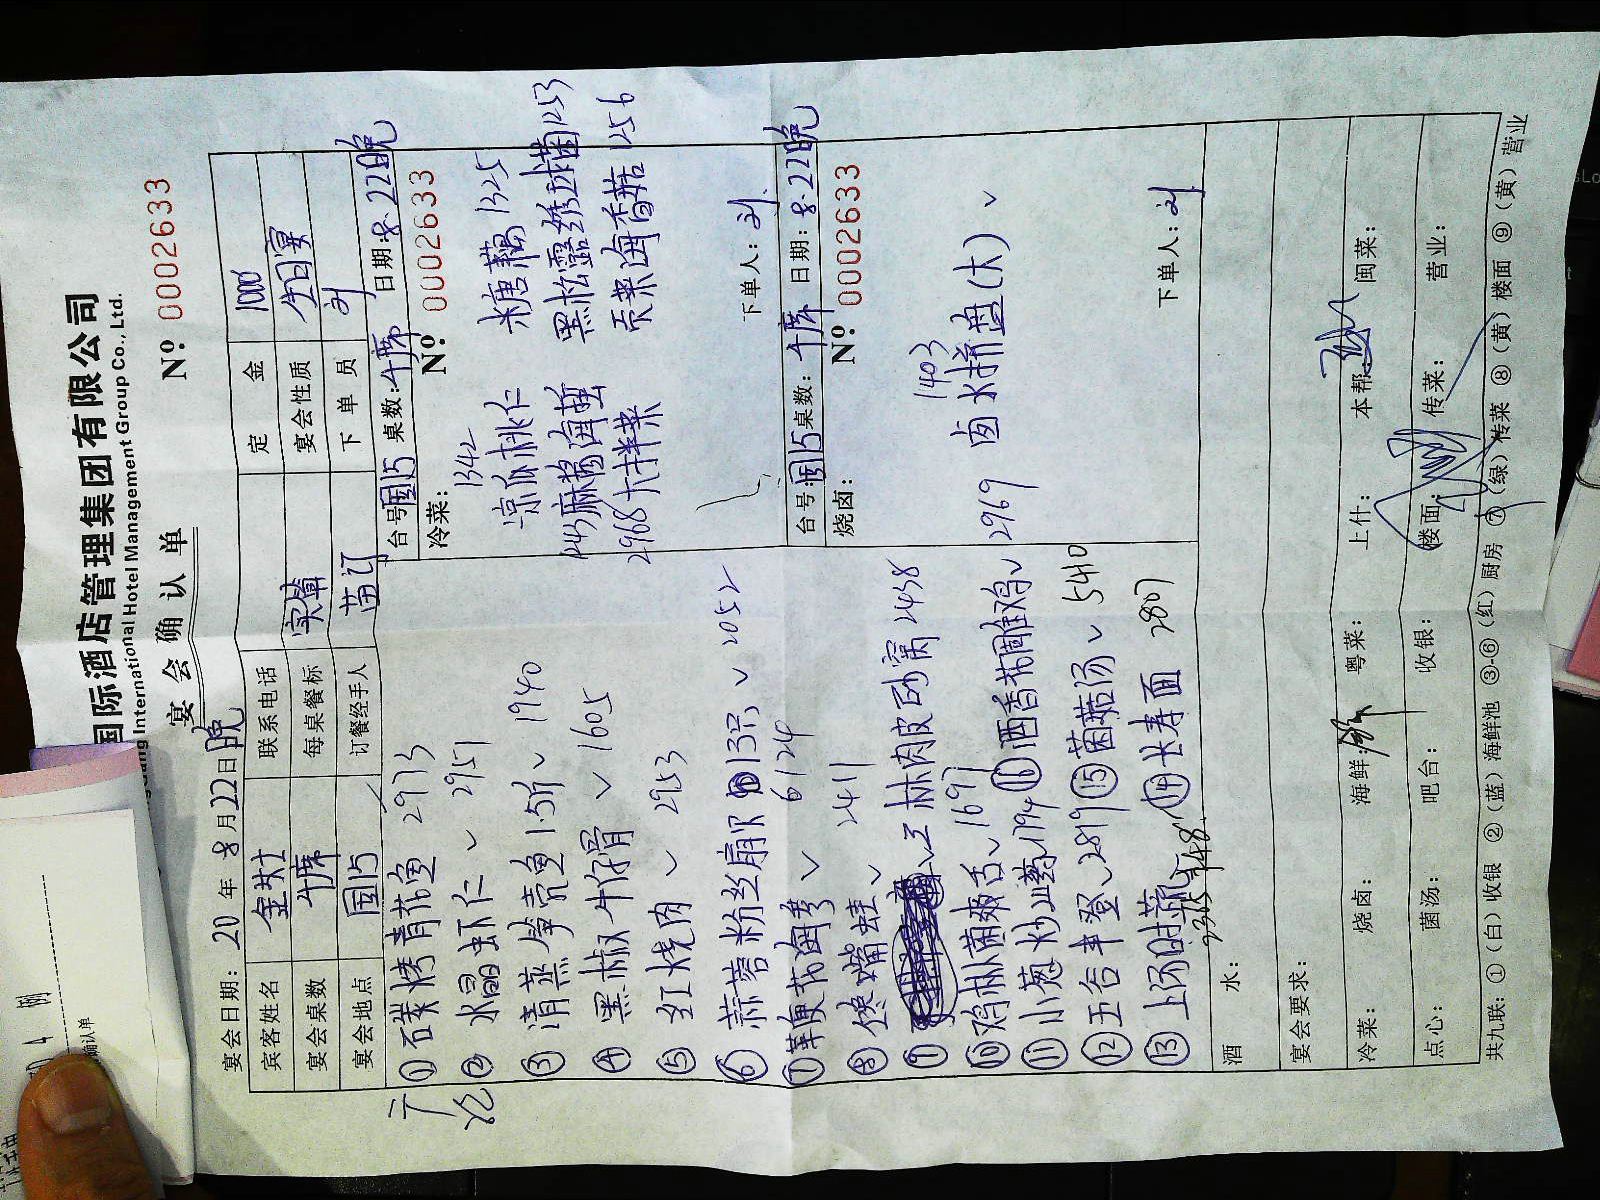 国际酒店管理集团有限公司
International Hotel Management Group Co., Ltd.
宴会确认单
Nº 0002633
宴会日期: 20 年 8 月 22 日 晚
宾客姓名 联系电话 定金 1000
宴会桌数 1席 每桌餐标 实算 宴会性质 生日宴
宴会地点 国15 订餐经手人 苗订 下单员 刘
① 碳烤青花鱼 2973
② 水晶虾仁 ✓ 2957
③ 清蒸笋壳鱼 1.5斤 ✓ 1940
④ 黑椒牛仔骨 ✓ 1605
⑤ 红烧肉 ✓ 2953
⑥ 蒜蓉粉丝扇贝 13只 ✓ 2052
⑦ 海参 ✓ 6124
⑧ 馋嘴蛙 ✓ 2411
⑨ 肉皮砂窝 2438
⑩ 鸡枞菌 ✓ 1697 ⑯ 酒香花雕鸡 ✓
⑪ 小葱炒 1794
⑫ 五谷丰登 ✓ 2819 ⑮ 菌菇汤 ✓ 5410
⑬ 上汤时蔬 ⑭ 长寿面 2807
台号: 国15 桌数: 1席 日期: 8.22晚
冷菜: Nº 0002633
1342
凉瓜桃仁 糖藕 1325
麻酱海蜇 黑松露绣球菌 1253
2968 大拌菜 海香菇 1256
下单人: 刘
台号: 国15 桌数: 1席 日期: 8.22晚
烧卤: Nº 0002633
1403
2969 卤水拼盘(大) ✓
下单人: 刘
酒水:
宴会要求:
冷菜: 烧卤: 海鲜: 粤菜: 上什: 本帮: 闽菜:
点心: 菌汤: 吧台: 收银: 楼面: 传菜: 营业:
共九联: ①(白)收银 ②(蓝)海鲜池 ③-⑥(红)厨房 ⑦(绿)传菜 ⑧(黄)楼面 ⑨(黄)营业
确认单